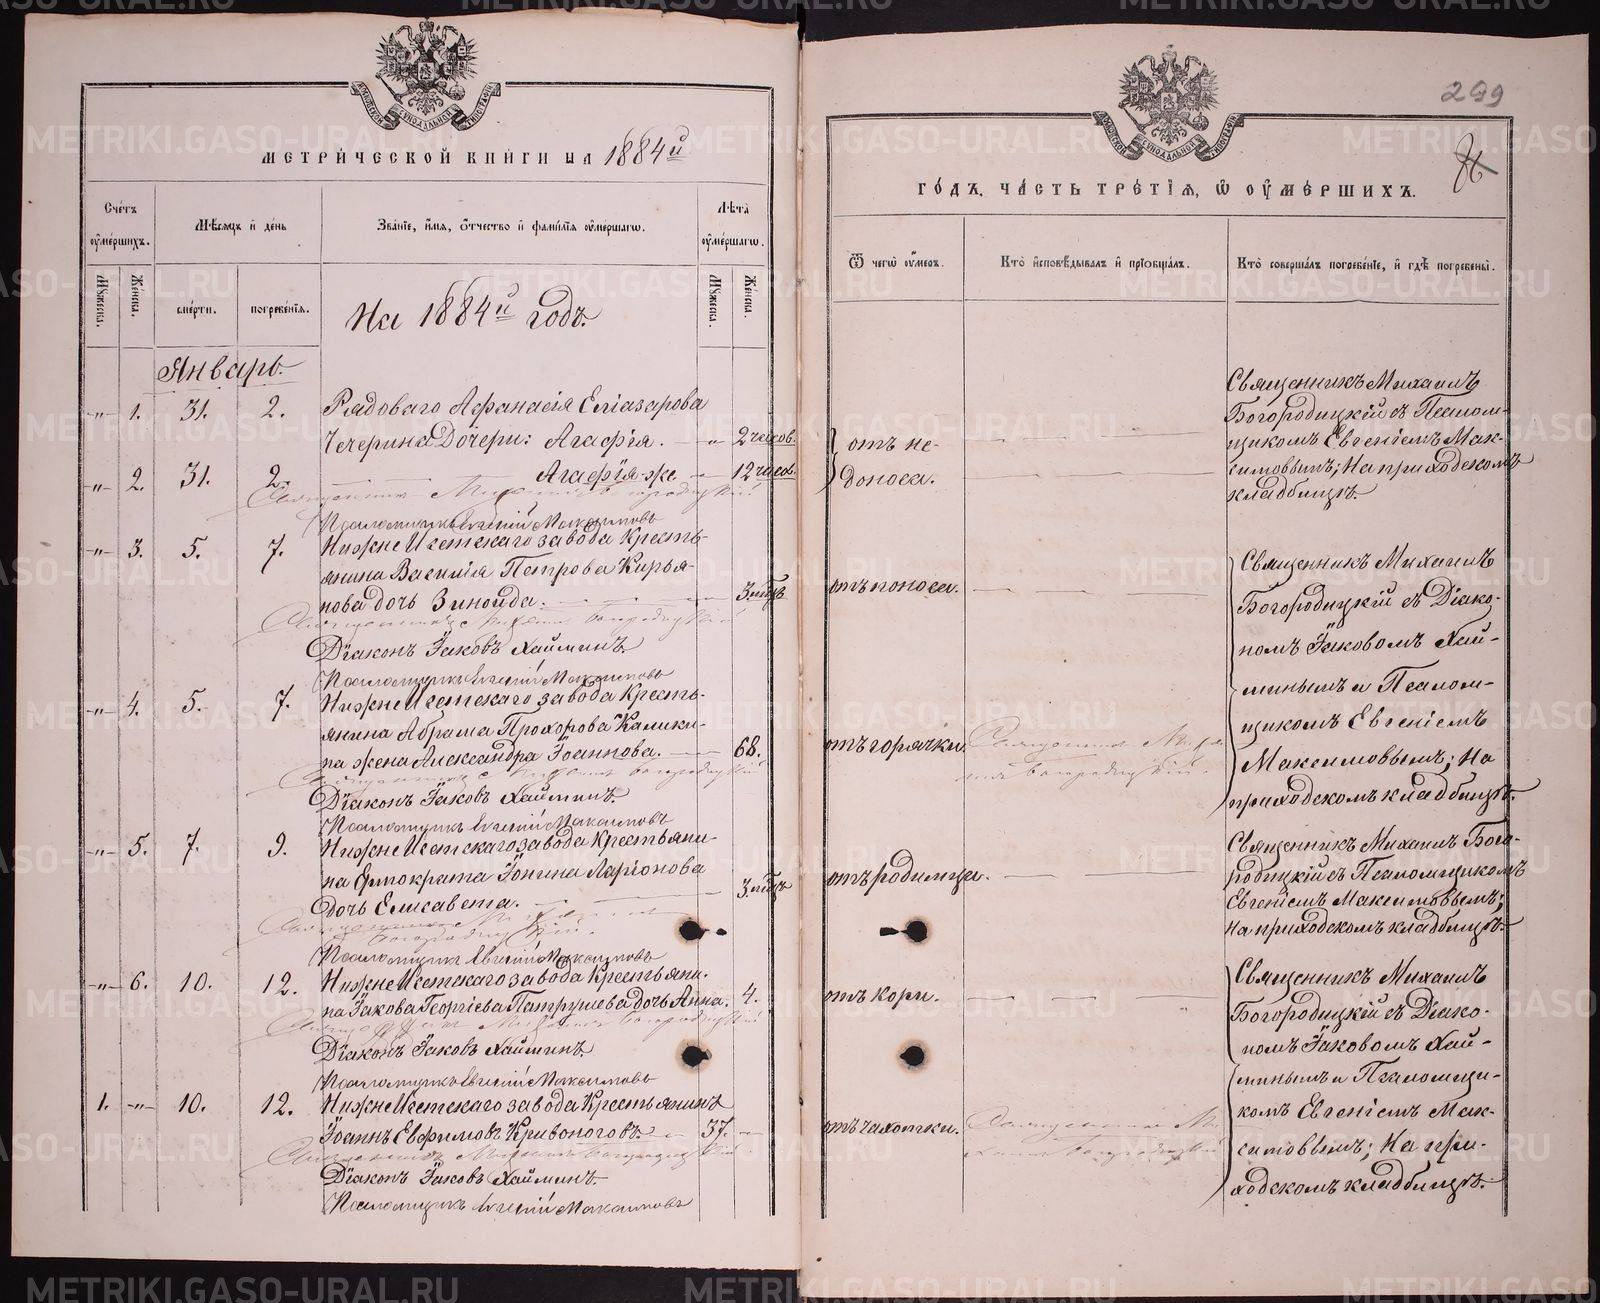 МЕТРИ́ЧЕСКОЙ КНИ́ГИ НА 1884й
Сче́тъ оу҆ме́ршихъ.
Мѣ́сяцъ и҆ де́нь
Зва́нїе, и҆́мя, ѻ҆́тчество и҆ фами́лїя оу҆ме́ршагѡ.
Лѣ́та оу҆ме́ршагѡ.
Мꙋ́жеска.
Же́нска.
сме́рти.
погребе́нїя.
Мꙋ́жеска.
Же́нска.
На 1884й годъ.
Январь.
-"- 1. 31. 2. Рядоваго Аѳанасія Еліазарова
Чечерина Дочери: Агафія. — -"- 2 часов.
-"- 2. 31. 2. — — Агафія-же. — 12 часов.
Священникъ Михаилъ Богородицкій
Псаломщикъ Евгеній Максимовъ
-"- 3. 5. 7. Нижне Исетскаго завода Кресть-
янина Василія Петрова Кирья-
нова дочь Зиноида. — — — 3 мѣс.
Священникъ Михаилъ Богородицкій
Діаконъ Іаковъ Хайминъ.
Псаломщикъ Евгеній Максимовъ
-"- 4. 5. 7. Нижне Исетскаго завода Кресть-
янина Абрама Прохорова Калики-
на жена Александра Іоаннова. — 68.
Священникъ Михаилъ Богородицкій
Діаконъ Іаковъ Хайминъ.
Псаломщикъ Евгеній Максимовъ
-"- 5. 7. 9. Нижне Исетскаго завода Крестьяни-
на Ермократа Іонина Ларіонова
дочь Елисавета. — — — 3 мѣс.
Священникъ Михаилъ
Богородицкій.
Псаломщикъ Евгеній Максимовъ
-"- 6. 10. 12. Нижне Исетскаго завода Крестьяни-
на Іакова Георгіева Патрушева дочь Анна. 4.
Священникъ Михаилъ Богородицкій
Діаконъ Іаковъ Хайминъ.
Псаломщикъ Евгеній Максимовъ
1. -"- 10. 12. Нижне Исетскаго завода Крестьянинъ
Іоаннъ Евфимовъ Кривоноговъ. — 37. —
Священникъ Михаилъ Богородицкій
Діаконъ Іаковъ Хайминъ.
Псаломщикъ Евгеній Максимовъ
299
ГО́ДЪ, ЧА́СТЬ ТРЕ́ТЇЯ, Ѡ҆ ОУ҆МЕ́РШИХЪ.
Ѿ чегѡ̀ оу҆́меръ.
Кто̀ и҆сповѣ́дывалъ и҆ прїѻбща́лъ.
Кто̀ соверша́лъ погребе́нїе, и҆ гдѣ̀ погребены̀.
отъ не-
доноса.
Священникъ Михаилъ
Богородицкій съ Псалом-
щикомъ Евгеніемъ Мак-
симовымъ; На приходскомъ
кладбищѣ.
отъ поноса. — —
Священникъ Михаилъ
Богородицкій съ Діако-
номъ Іаковомъ Хай-
минымъ и Псалом-
щикомъ Евгеніемъ
Максимовымъ; На
приходскомъ кладбищѣ.
отъ горячки. Священникъ Миха-
илъ Богородицкій.
отъ родимца. — — —
Священникъ Михаилъ Бого-
родицкій съ Псаломщикомъ
Евгеніемъ Максимовымъ;
На приходскомъ кладбищѣ.
отъ кори. — — —
Священникъ Михаилъ
Богородицкій съ Діако-
номъ Іаковомъ Хай-
минымъ и Псаломщи-
комъ Евгеніемъ Мак-
симовымъ; На при-
ходскомъ кладбищѣ.
отъ чахотки. Священникъ Ми-
хаилъ Богородицкій
METRIKI.GASO-URAL.RU